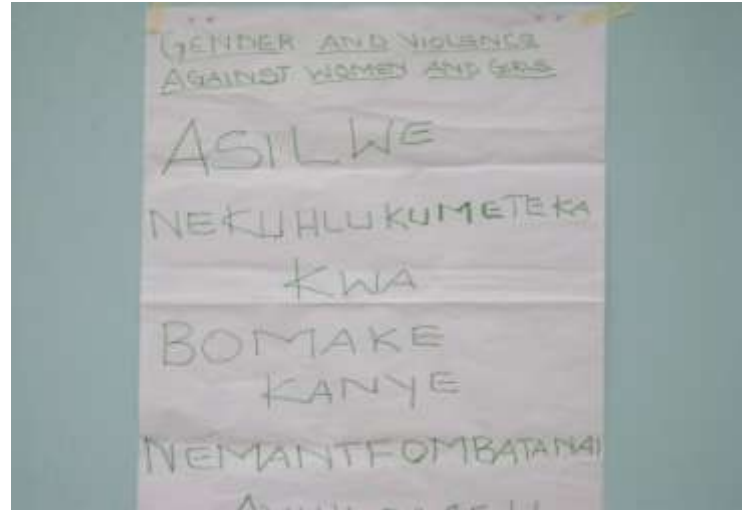 GENDER AND VIOLENCE
AGAINST WOMEN AND GIRLS
ASILWE
NEKUHLUKUMETEKA
KWA
BOMAKE
KANYE
NEMANTFOMBATANA